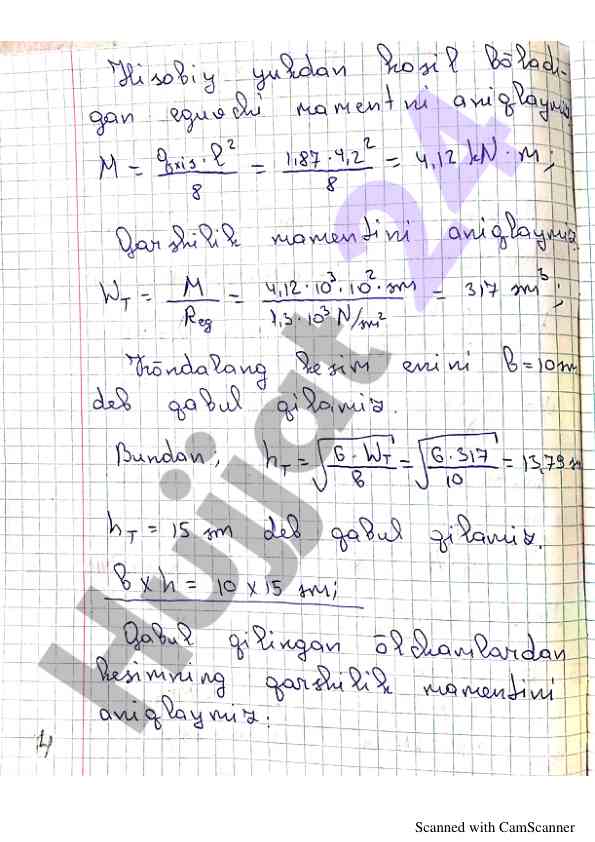 Hisobiy yukdan hosil bŏladi-
gan eguvchi mamentni aniqlaymiz
M = qxis · l² / 8 = 1,87 · 4,2² / 8 = 4,12 kN · m;
Qarshilik mamentini aniqlaymiz.
WT = M / Reg = 4,12 · 10³ · 10² · sm / 1,3 · 10³ N/sm² = 317 sm³;
Kŏndalang kesim enini b = 10 sm
deb qabul qilamiz.
Bundan; hT = √(6 · WT / b) = √(6 · 317 / 10) = 13,79 s
hT = 15 sm deb qabul qilamiz.
b x h = 10 x 15 sm;
Qabul qilingan ŏlchamlardan
kesimning qarshilik mamentini
aniqlaymiz:
4
Hujjat 24
Scanned with CamScanner